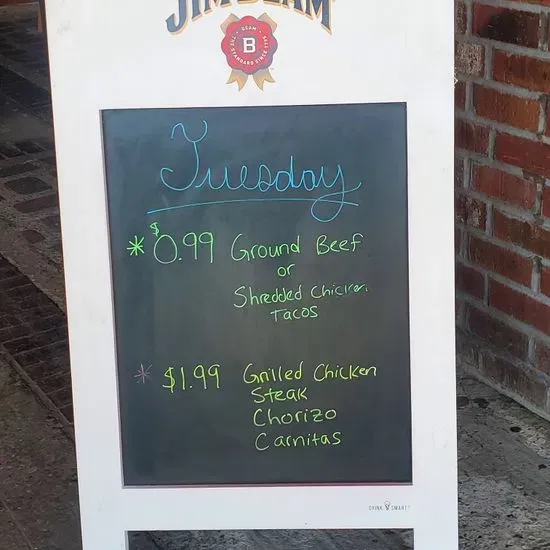 JIM BEAM
BEAM
B
THE STANDARD SINCE 1795
Tuesday
* $0.99 Ground Beef
or
Shredded Chicken
Tacos
* $1.99 Grilled Chicken
Steak
Chorizo
Carnitas
DRINK SMART®